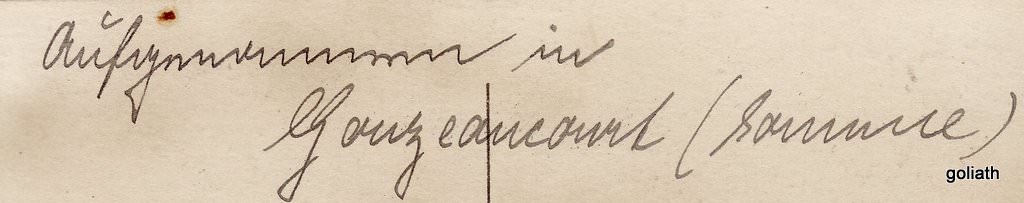 Aufgenommen in
Gouzeaucourt (Somme)
goliath